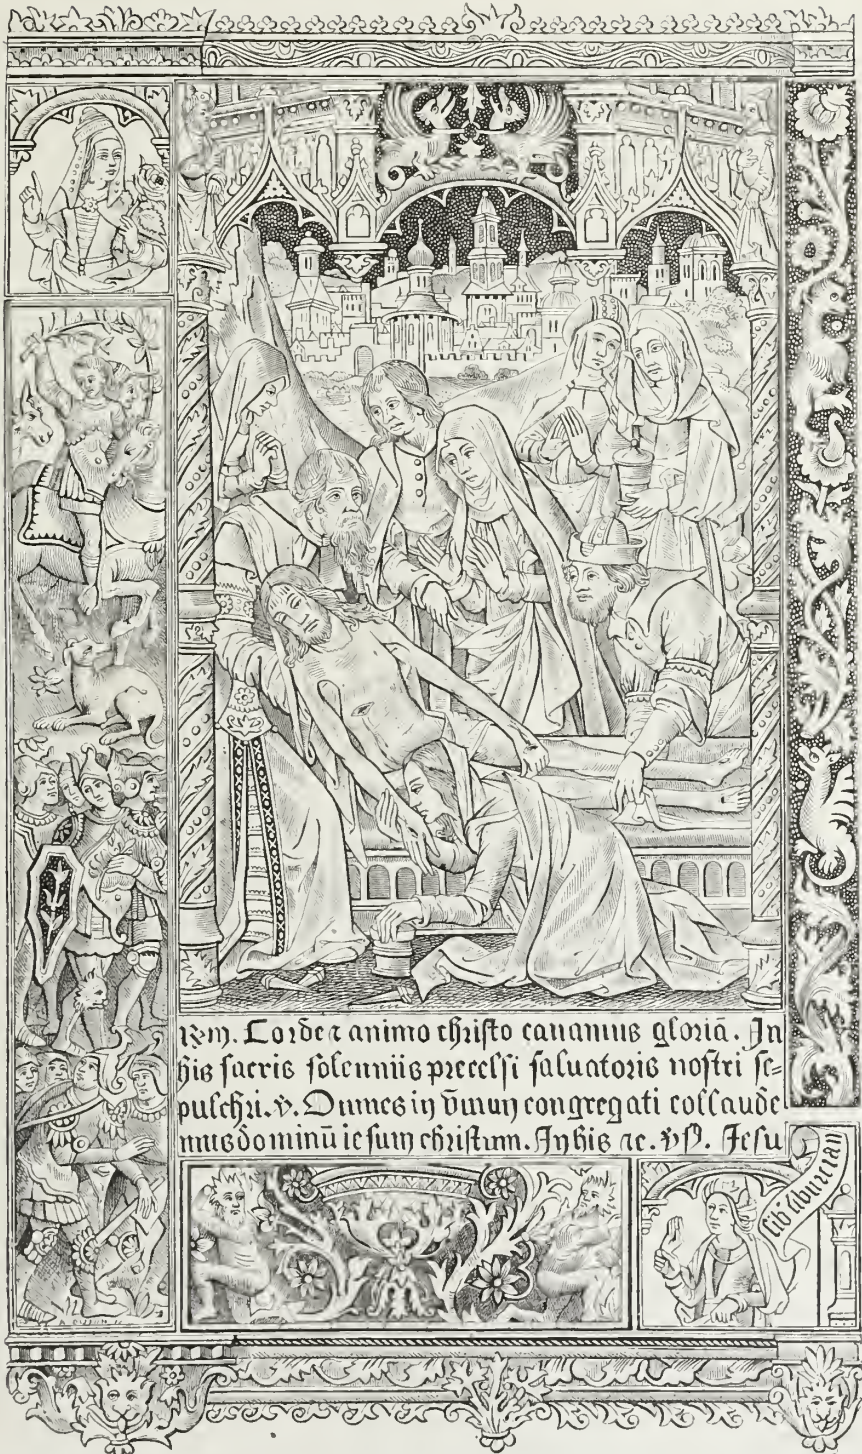 Corde ⁊ animo chriſto canamus gloriā. In
his ſacris ſolenniis precelſi ſaluatoris noſtri ſe=
pulchri. ℣. Omnes in vnum congregati collaude
mus dominū ieſum chriſtum. In his ⁊c. Jeſu